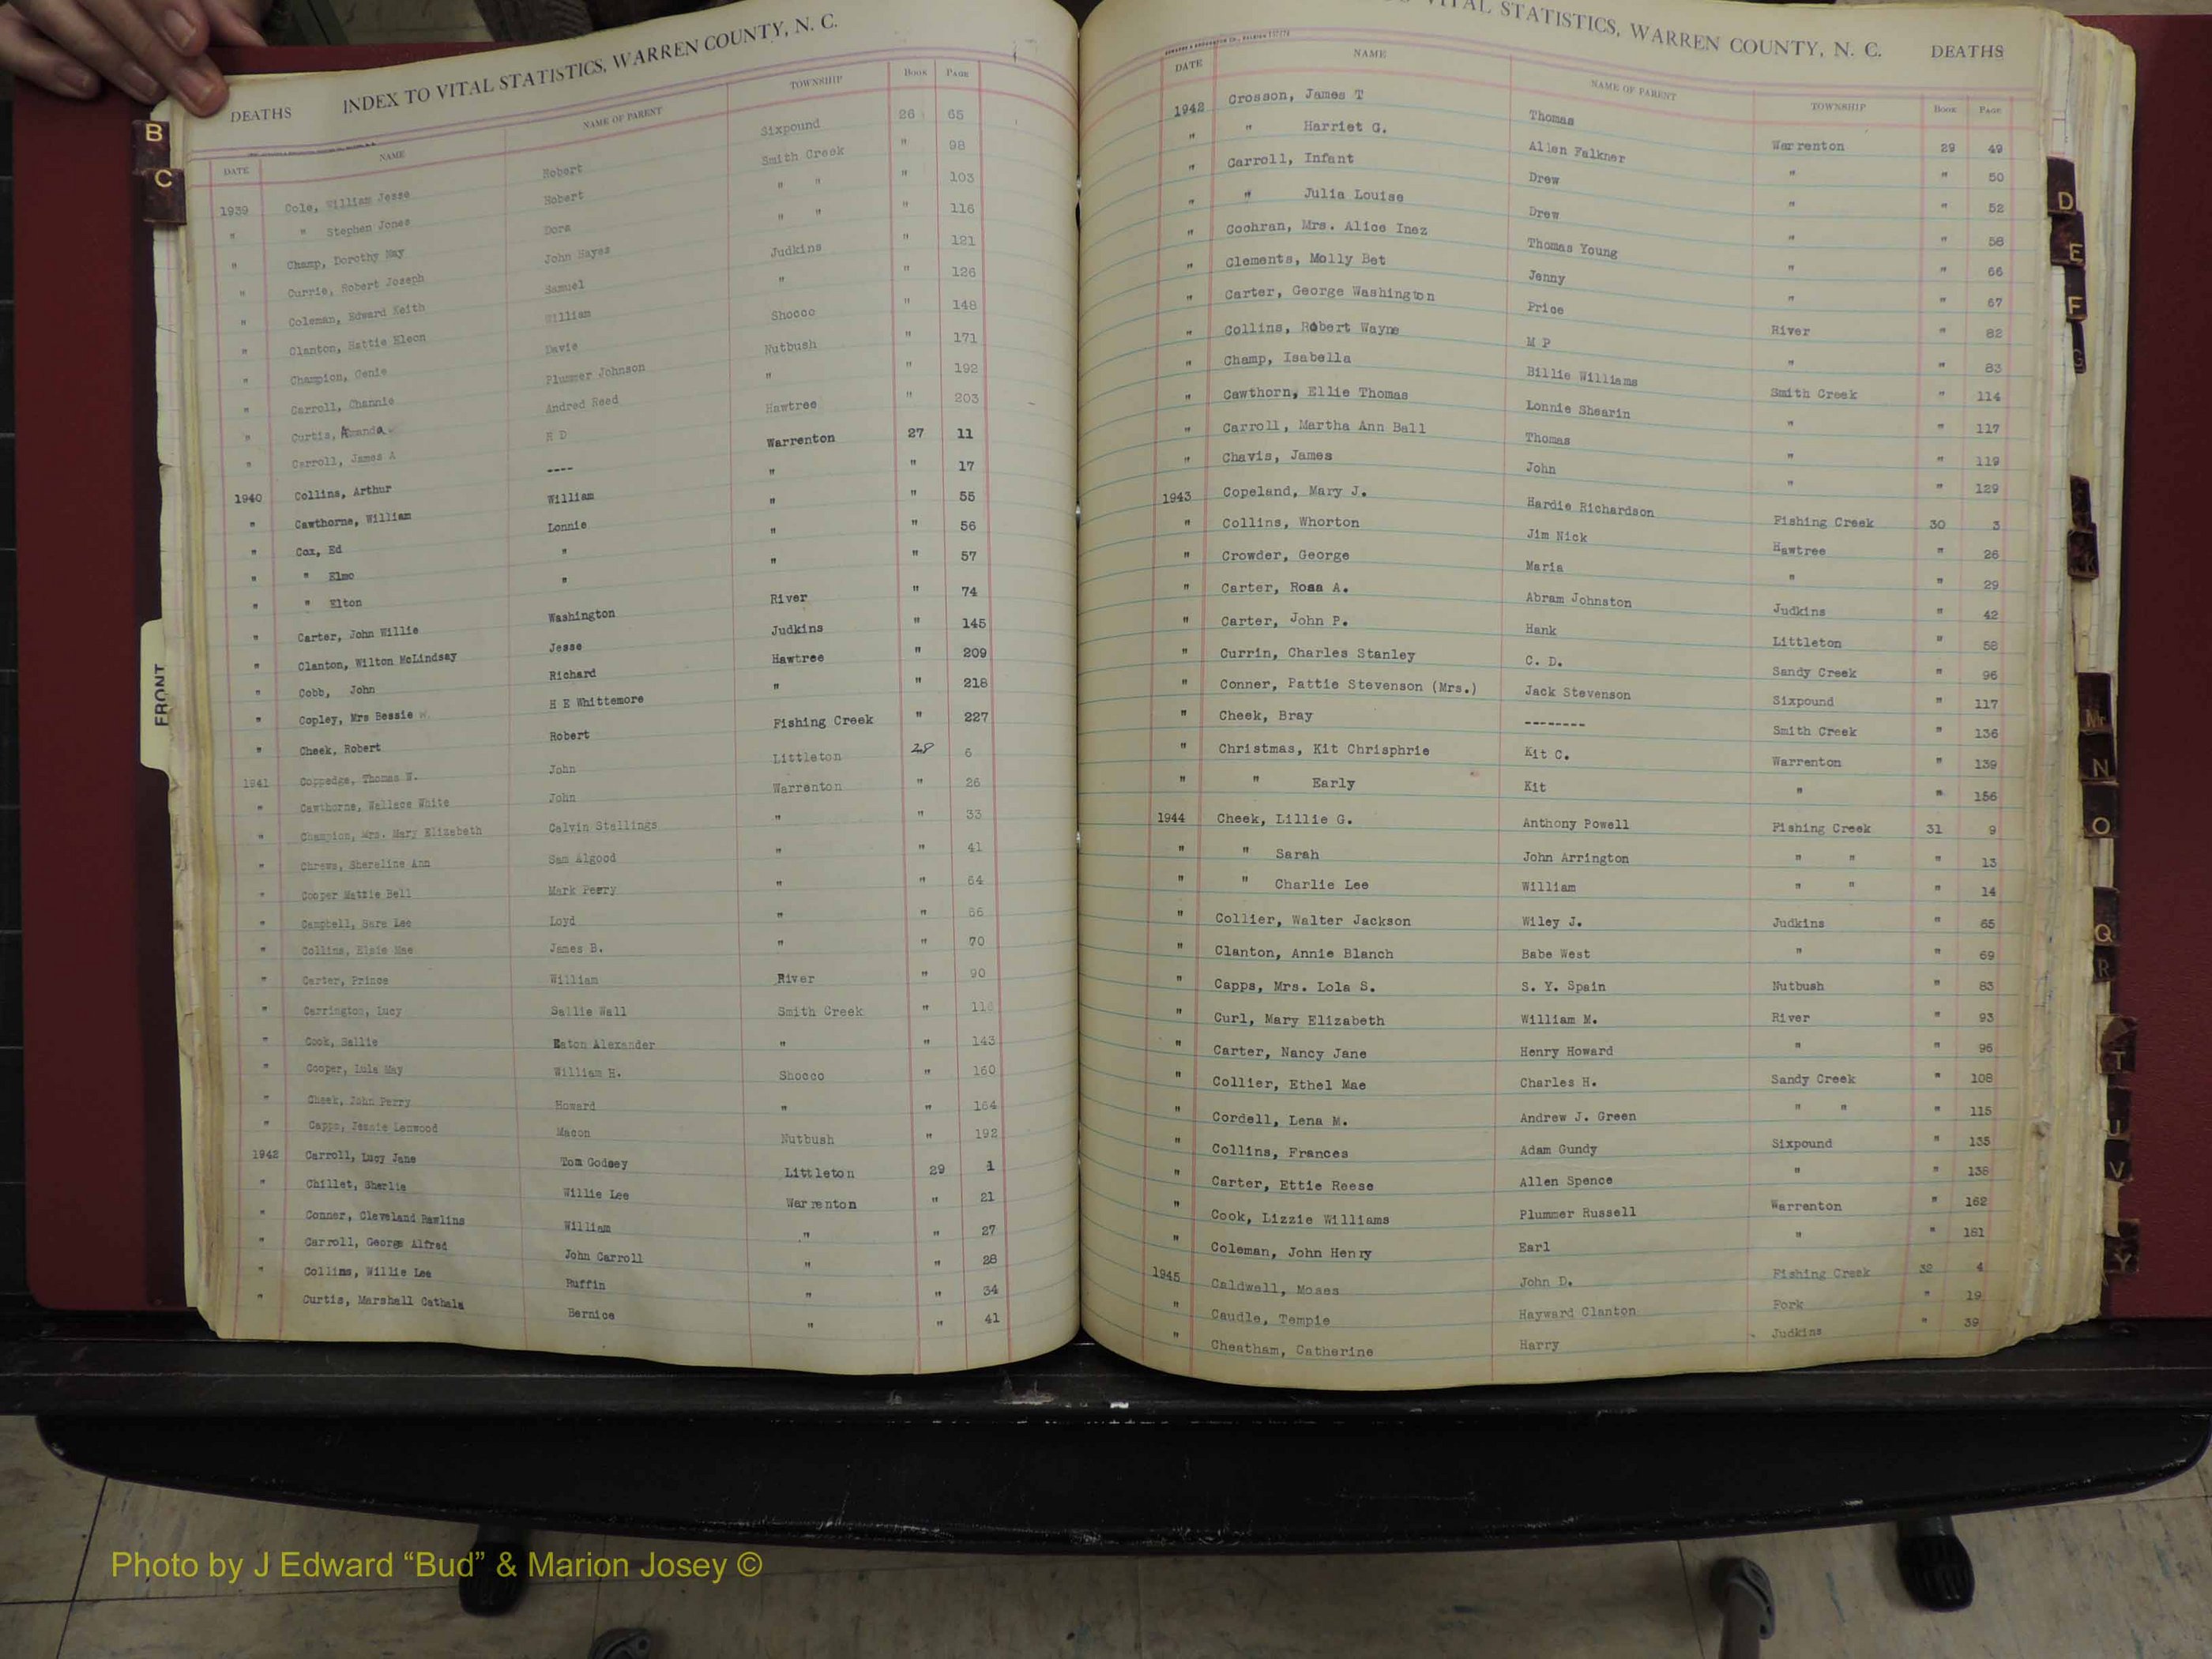 DEATHS INDEX TO VITAL STATISTICS, WARREN COUNTY, N. C.
DATE NAME NAME OF PARENT TOWNSHIP BOOK PAGE
1939 Cole, William Jesse Robert Sixpound 26 65
" " Stephen Jones Robert Smith Creek " 98
" Champ, Dorothy May Dora " " " 103
" Currie, Robert Joseph John Hayes " " " 116
" Coleman, Edward Keith Samuel Judkins " 121
" Clanton, Hattie Eleen William " " 126
" Champion, Genie Davie Shocco " 148
" Carroll, Channie Plummer Johnson Nutbush " 171
" Curtis, Amanda Andred Reed " " 192
" Carroll, James A R D Hawtree " 203
1940 Collins, Arthur ---- Warrenton 27 11
" Cawthorne, William William " " 17
" Cox, Ed Lonnie " " 55
" " Elmo " " " 56
" " Elton " " " 57
" Carter, John Willie Washington River " 74
" Clanton, Wilton McLindsay Jesse Judkins " 145
" Cobb, John Richard Hawtree " 209
" Copley, Mrs Bessie W. H E Whittemore " " 218
" Cheek, Robert Robert Fishing Creek " 227
1941 Coppedge, Thomas N. John Littleton 28 6
" Cawthorne, Wallace White John Warrenton " 26
" Champion, Mrs. Mary Elizabeth Calvin Stallings " " 33
" Chrews, Shereline Ann Sam Algood " " 41
" Cooper Mattie Bell Mark Perry " " 64
" Campbell, Sara Lee Loyd " " 66
" Collins, Elsie Mae James B. " " 70
" Carter, Prince William River " 90
" Carrington, Lucy Sallie Wall Smith Creek "
" Cook, Sallie Eaton Alexander " " 143
" Cooper, Lula May William H. Shocco " 160
" Cheek, John Perry Howard " " 164
" Capps, Jessie Lenwood Macon Nutbush " 192
1942 Carroll, Lucy Jane Tom Godsey Littleton 29 1
" Chillet, Sherlie Willie Lee Warrenton " 21
" Conner, Cleveland Rawlins William " " 27
" Carroll, George Alfred John Carroll " " 28
" Collins, Willie Lee Ruffin " " 34
" Curtis, Marshall Cathals Bernice " " 41
VITAL STATISTICS, WARREN COUNTY, N. C. DEATHS
DATE NAME NAME OF PARENT TOWNSHIP BOOK PAGE
1942 Crosson, James T Thomas Warrenton 29 49
" " Harriet G. Allen Falkner " " 50
" Carroll, Infant Drew " " 52
" " Julia Louise Drew " " 58
" Cochran, Mrs. Alice Inez Thomas Young " " 66
" Clements, Molly Bet Jenny " " 67
" Carter, George Washington Price River " 82
" Collins, Robert Wayne M P " " 83
" Champ, Isabella Billie Williams Smith Creek " 114
" Cawthorn, Ellie Thomas Lonnie Shearin " " 117
" Carroll, Martha Ann Ball Thomas " " 119
" Chavis, James John " " 129
1943 Copeland, Mary J. Hardie Richardson Fishing Creek 30 3
" Collins, Whorton Jim Nick Hawtree " 26
" Crowder, George Maria " " 29
" Carter, Rosa A. Abram Johnston Judkins " 42
" Carter, John P. Hank Littleton " 58
" Currin, Charles Stanley C. D. Sandy Creek " 96
" Conner, Pattie Stevenson (Mrs.) Jack Stevenson Sixpound " 117
" Cheek, Bray -------- Smith Creek " 136
" Christmas, Kit Chrisphrie Kit C. Warrenton " 139
" " Early Kit " " 156
1944 Cheek, Lillie G. Anthony Powell Fishing Creek 31 9
" " Sarah John Arrington " " " 13
" " Charlie Lee William " " " 14
" Collier, Walter Jackson Wiley J. Judkins " 65
" Clanton, Annie Blanch Babe West " " 69
" Capps, Mrs. Lola S. S. Y. Spain Nutbush " 83
" Curl, Mary Elizabeth William M. River " 93
" Carter, Nancy Jane Henry Howard " " 96
" Collier, Ethel Mae Charles H. Sandy Creek " 108
" Cordell, Lena M. Andrew J. Green " " " 115
" Collins, Frances Adam Gundy Sixpound " 135
" Carter, Ettie Reese Allen Spence " " 138
" Cook, Lizzie Williams Plummer Russell Warrenton " 162
" Coleman, John Henry Earl " " 181
1945 Caldwell, Moses John D. Fishing Creek 32 4
" Caudle, Tempie Hayward Clanton Fork " 19
" Cheatham, Catherine Harry Judkins " 39
B
C
FRONT
D
E
F
G
K
Mc
N
O
Q
R
T
U
V
Y
Photo by J Edward “Bud” & Marion Josey ©